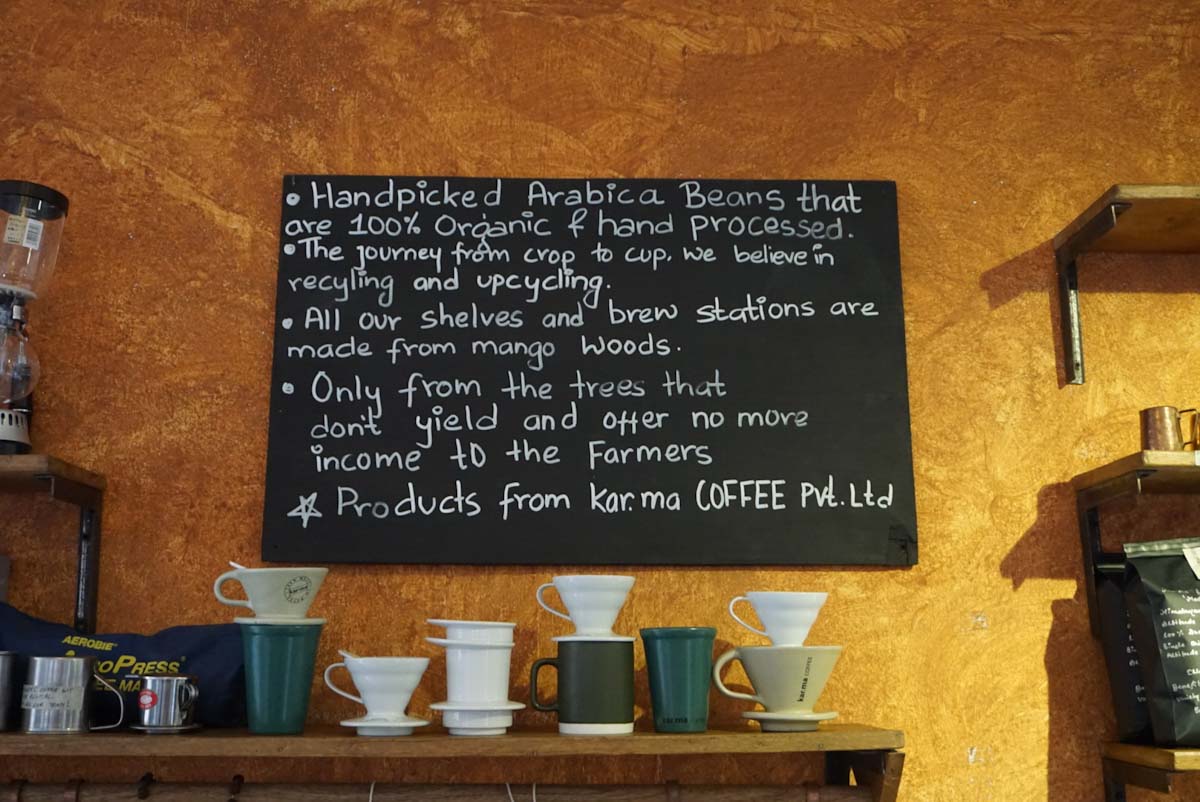 • Handpicked Arabica Beans that
are 100% Organic & hand processed.
• The journey from crop to cup. we believe in
recyling and upcycling.
• All our shelves and brew stations are
made from mango woods.
• Only from the trees that
don't yield and offer no more
income to the Farmers
☆ Products from kar.ma COFFEE Pvt. Ltd
AEROBIE
PRESS
kar.ma COFFEE
kar.ma
Himalayan
Altitude
100%
Single
Altitude